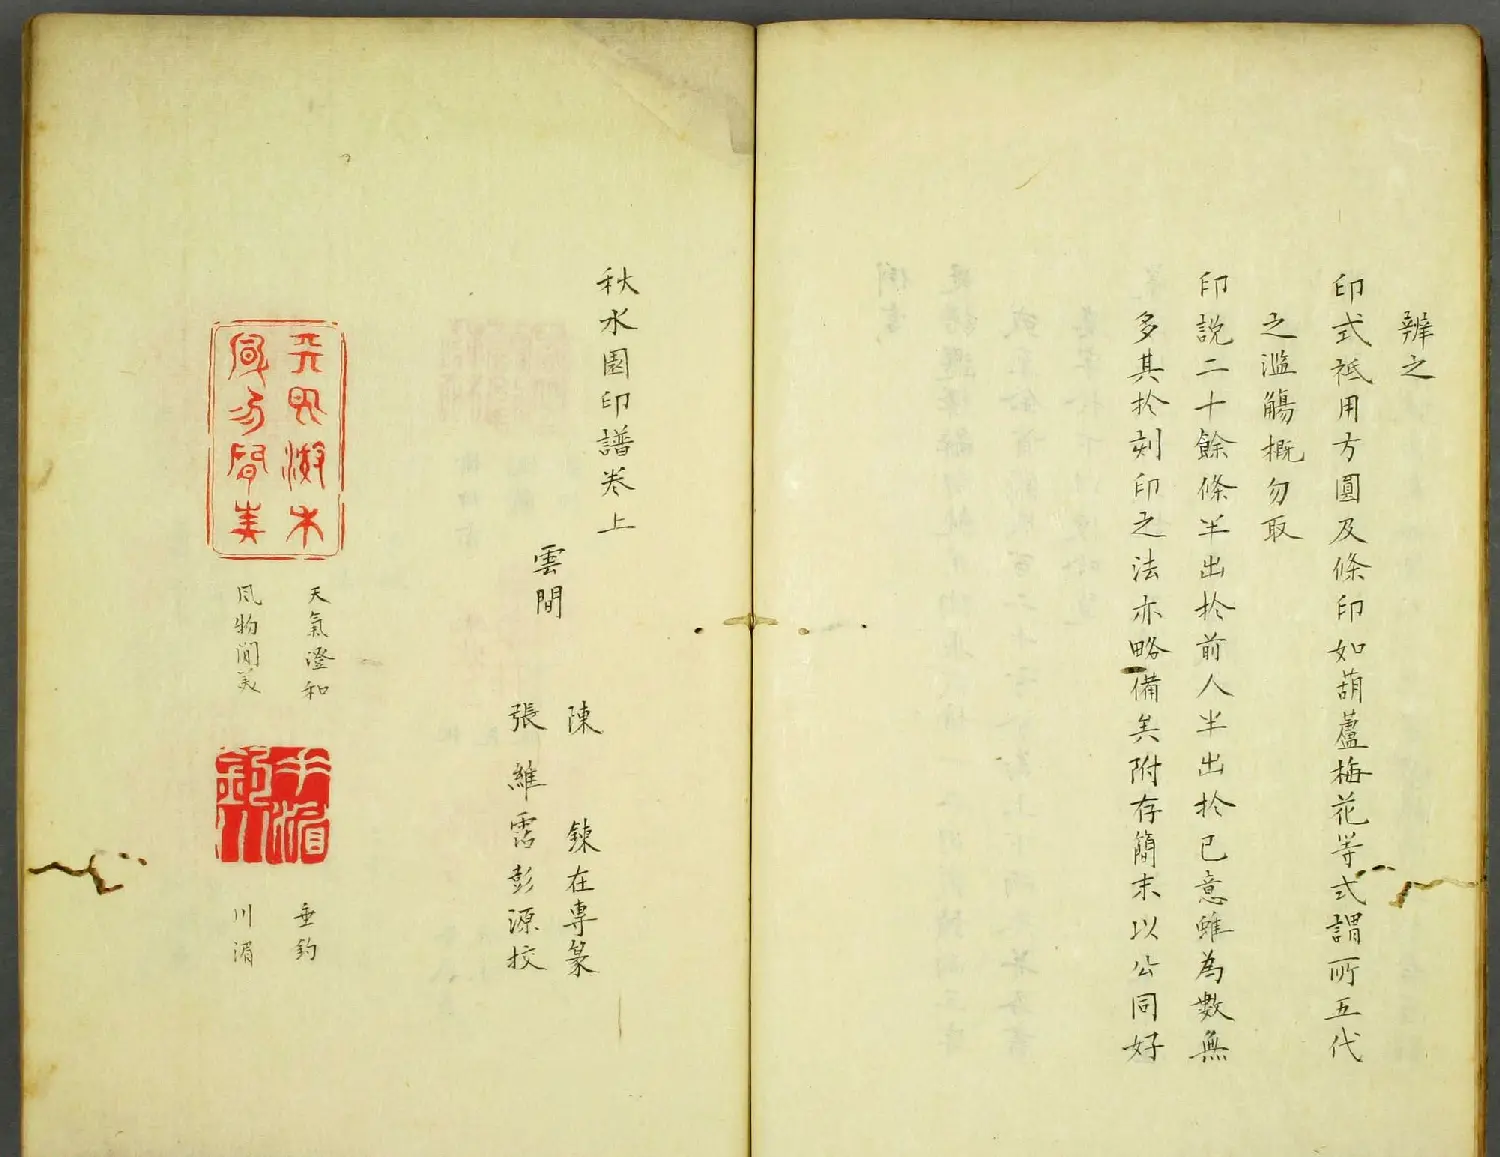 辨之
印式祗用方圓及條印如葫蘆梅花等式謂所五代
之濫觴概勿取
印説二十餘條半出於前人半出於已意雖為數無
多其於刻印之法亦略備矣附存簡末以公同好
秋水園印譜卷上
雲間
陳鍊在專篆
張維霑彭源挍
天氣澄和
風物閒美
垂釣
川湄